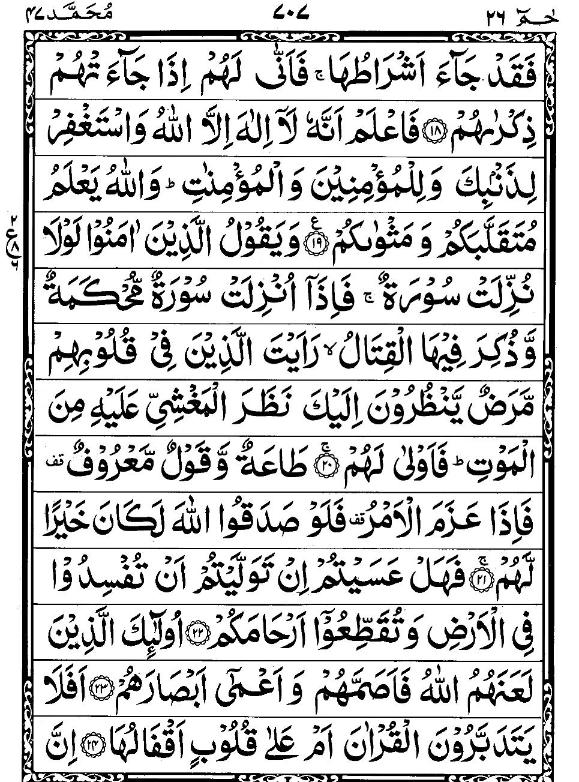 حٰمٓ ٢٦ ٧٠٧ مُحَمَّد ٤٧
فَقَدْ جَآءَ اَشْرَاطُهَا ۚ فَاَنّٰى لَهُمْ اِذَا جَآءَتْهُمْ
ذِكْرٰىهُمْ ﴿١٨﴾ فَاعْلَمْ اَنَّهٗ لَآ اِلٰهَ اِلَّا اللّٰهُ وَاسْتَغْفِرْ
لِذَنْۢبِكَ وَلِلْمُؤْمِنِيْنَ وَالْمُؤْمِنٰتِ ؕ وَاللّٰهُ يَعْلَمُ
مُتَقَلَّبَكُمْ وَمَثْوٰىكُمْ ﴿١٩﴾ ع وَيَقُوْلُ الَّذِيْنَ اٰمَنُوْا لَوْلَا
نُزِّلَتْ سُوْرَةٌ ۚ فَاِذَآ اُنْزِلَتْ سُوْرَةٌ مُّحْكَمَةٌ
وَّذُكِرَ فِيْهَا الْقِتَالُ ۙ رَاَيْتَ الَّذِيْنَ فِيْ قُلُوْبِهِمْ
مَّرَضٌ يَّنْظُرُوْنَ اِلَيْكَ نَظَرَ الْمَغْشِيِّ عَلَيْهِ مِنَ
الْمَوْتِ ؕ فَاَوْلٰى لَهُمْ ﴿٢٠﴾ۚ طَاعَةٌ وَّقَوْلٌ مَّعْرُوْفٌ قف
فَاِذَا عَزَمَ الْاَمْرُ قف فَلَوْ صَدَقُوا اللّٰهَ لَكَانَ خَيْرًا
لَّهُمْ ﴿٢١﴾ۚ فَهَلْ عَسَيْتُمْ اِنْ تَوَلَّيْتُمْ اَنْ تُفْسِدُوْا
فِي الْاَرْضِ وَتُقَطِّعُوْٓا اَرْحَامَكُمْ ﴿٢٢﴾ اُولٰٓئِكَ الَّذِيْنَ
لَعَنَهُمُ اللّٰهُ فَاَصَمَّهُمْ وَاَعْمٰٓى اَبْصَارَهُمْ ﴿٢٣﴾ اَفَلَا
يَتَدَبَّرُوْنَ الْقُرْاٰنَ اَمْ عَلٰى قُلُوْبٍ اَقْفَالُهَا ﴿٢٤﴾ اِنَّ
٢
ع ٨
٦